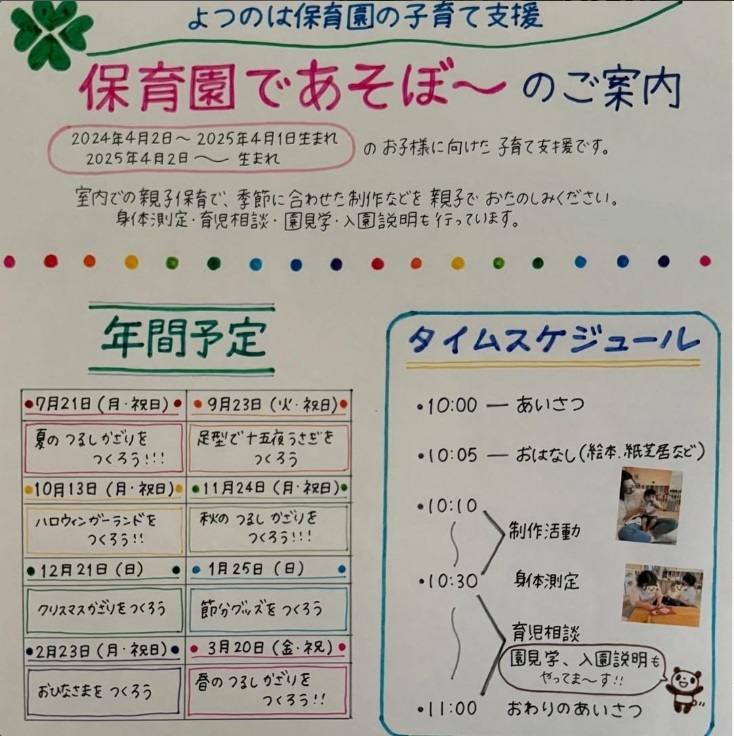 よつのは保育園の子育て支援
保育園であそぼ〜のご案内
2024年4月2日〜2025年4月1日生まれ
2025年4月2日〜 生まれ
のお子様に向けた子育て支援です。
室内での親子保育で、季節に合わせた制作などを親子でおたのしみください。
身体測定・育児相談・園見学・入園説明も行っています。
年間予定
7月21日(月・祝日)
夏のつるしかざりを
つくろう!!!
9月23日(火・祝日)
足型で十五夜うさぎを
つくろう
10月13日(月・祝日)
ハロウィンガーランドを
つくろう!!
11月24日(月・祝日)
秋のつるしかざりを
つくろう!!!
12月21日(日)
クリスマスかざりをつくろう
1月25日(日)
節分グッズをつくろう
2月23日(月・祝日)
おひなさまをつくろう
3月20日(金・祝)
春のつるしかざりを
つくろう!!
タイムスケジュール
・10:00 ― あいさつ
・10:05 ― おはなし(絵本、紙芝居など)
・10:10
制作活動
・10:30 身体測定
育児相談
園見学、入園説明も
やってま〜す!!
・11:00 おわりのあいさつ